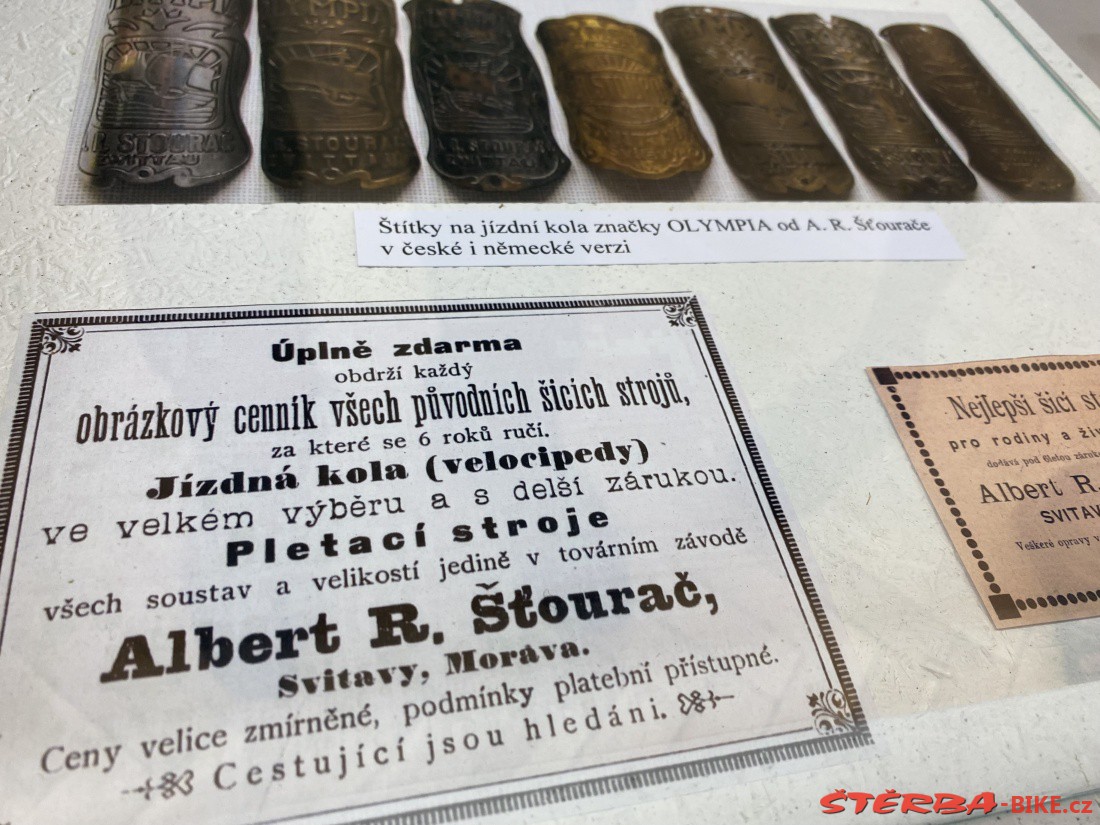 OLYMPIA
A. R. ŠTOURAČ
ZWITTAU
Štítky na jízdní kola značky OLYMPIA od A. R. Šťourače
v české i německé verzi
Úplně zdarma
obdrží každý
obrázkový cenník všech původních šicích strojů,
za které se 6 roků ručí.
Jízdná kola (velocipedy)
ve velkém výběru a s delší zárukou.
Pletací stroje
všech soustav a velikostí jedině v továrním závodě
Albert R. Šťourač,
Svitavy, Morava.
Ceny velice zmírněné, podmínky platební přístupné.
Cestující jsou hledáni.
Nejlepší šicí
pro rodiny a
dodává pod 6letou
Albert R.
Veškeré opravy
ŠTĚRBA-BIKE.cz